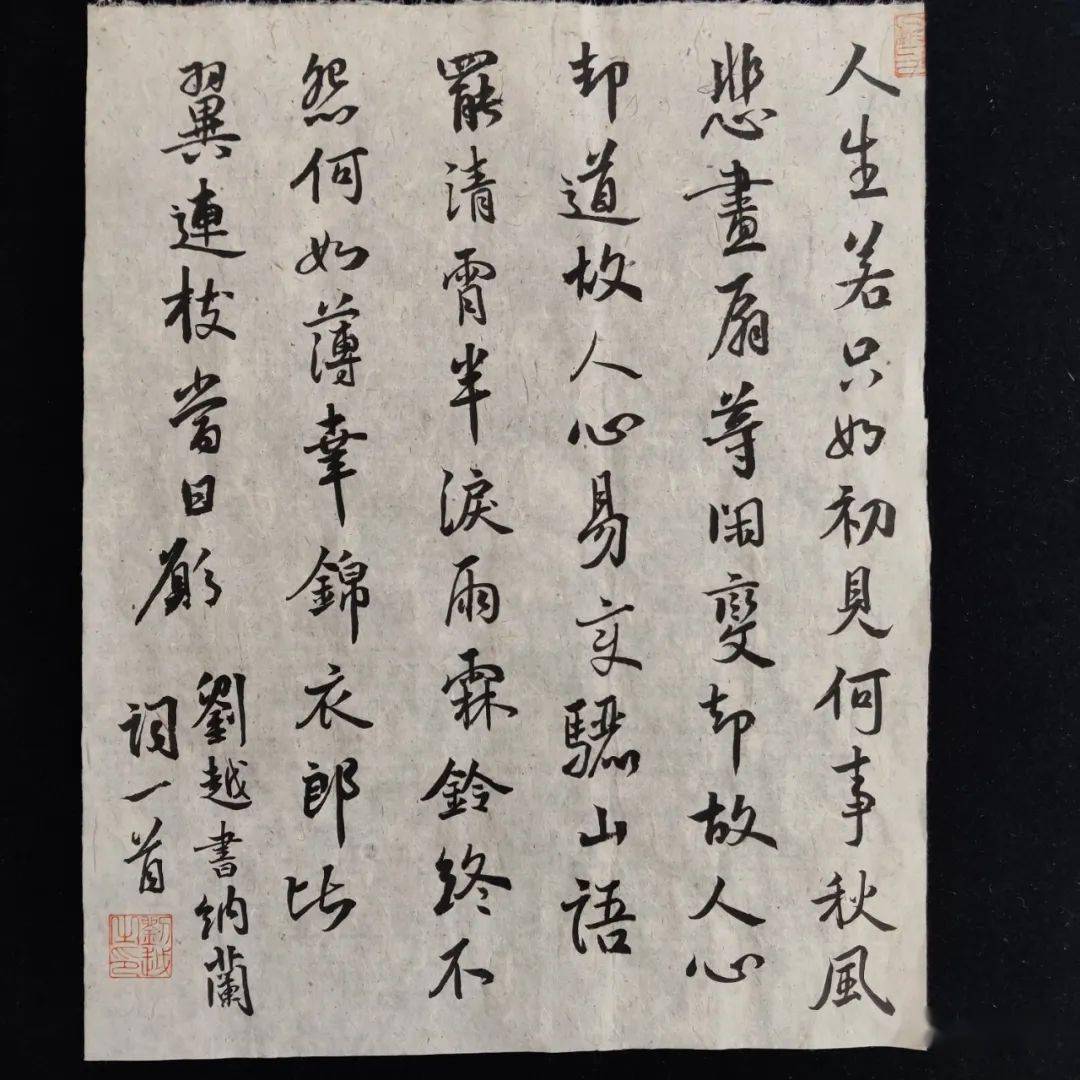 人生若只如初見何事秋風
悲畫扇等閑變却故人心
却道故人心易变驪山語
罷清霄半淚雨霖鈴終不
怨何如薄幸錦衣郎比
翼連枝當日願
劉越書納蘭
詞一首
劉越之印